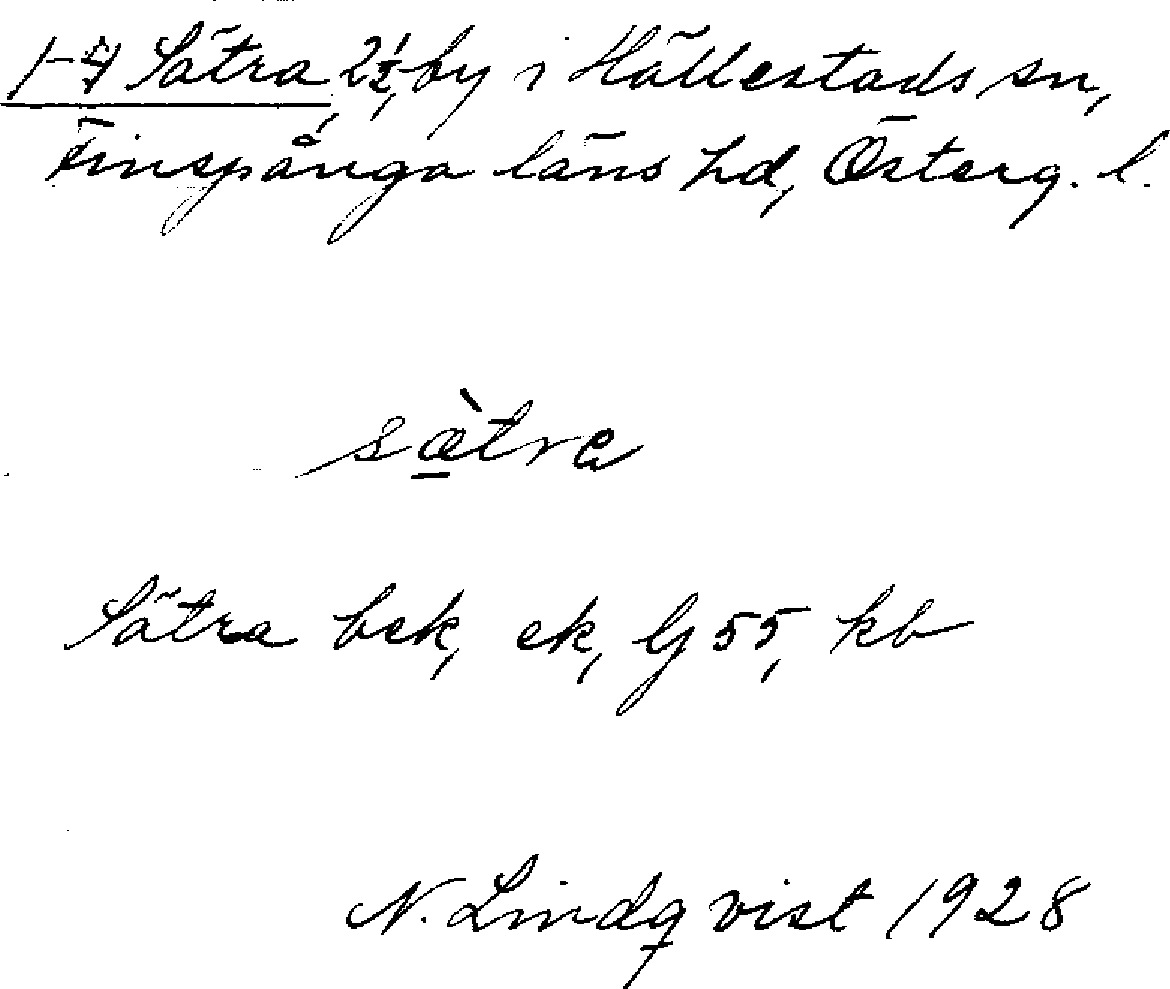 1-4 Sätra, 2½, by i Hällestads sn,
Finspånga läns hd, Österg. l.
sæ̀tra
Sätra bek, ek, Gj 55, kb
N. Lindqvist 1928